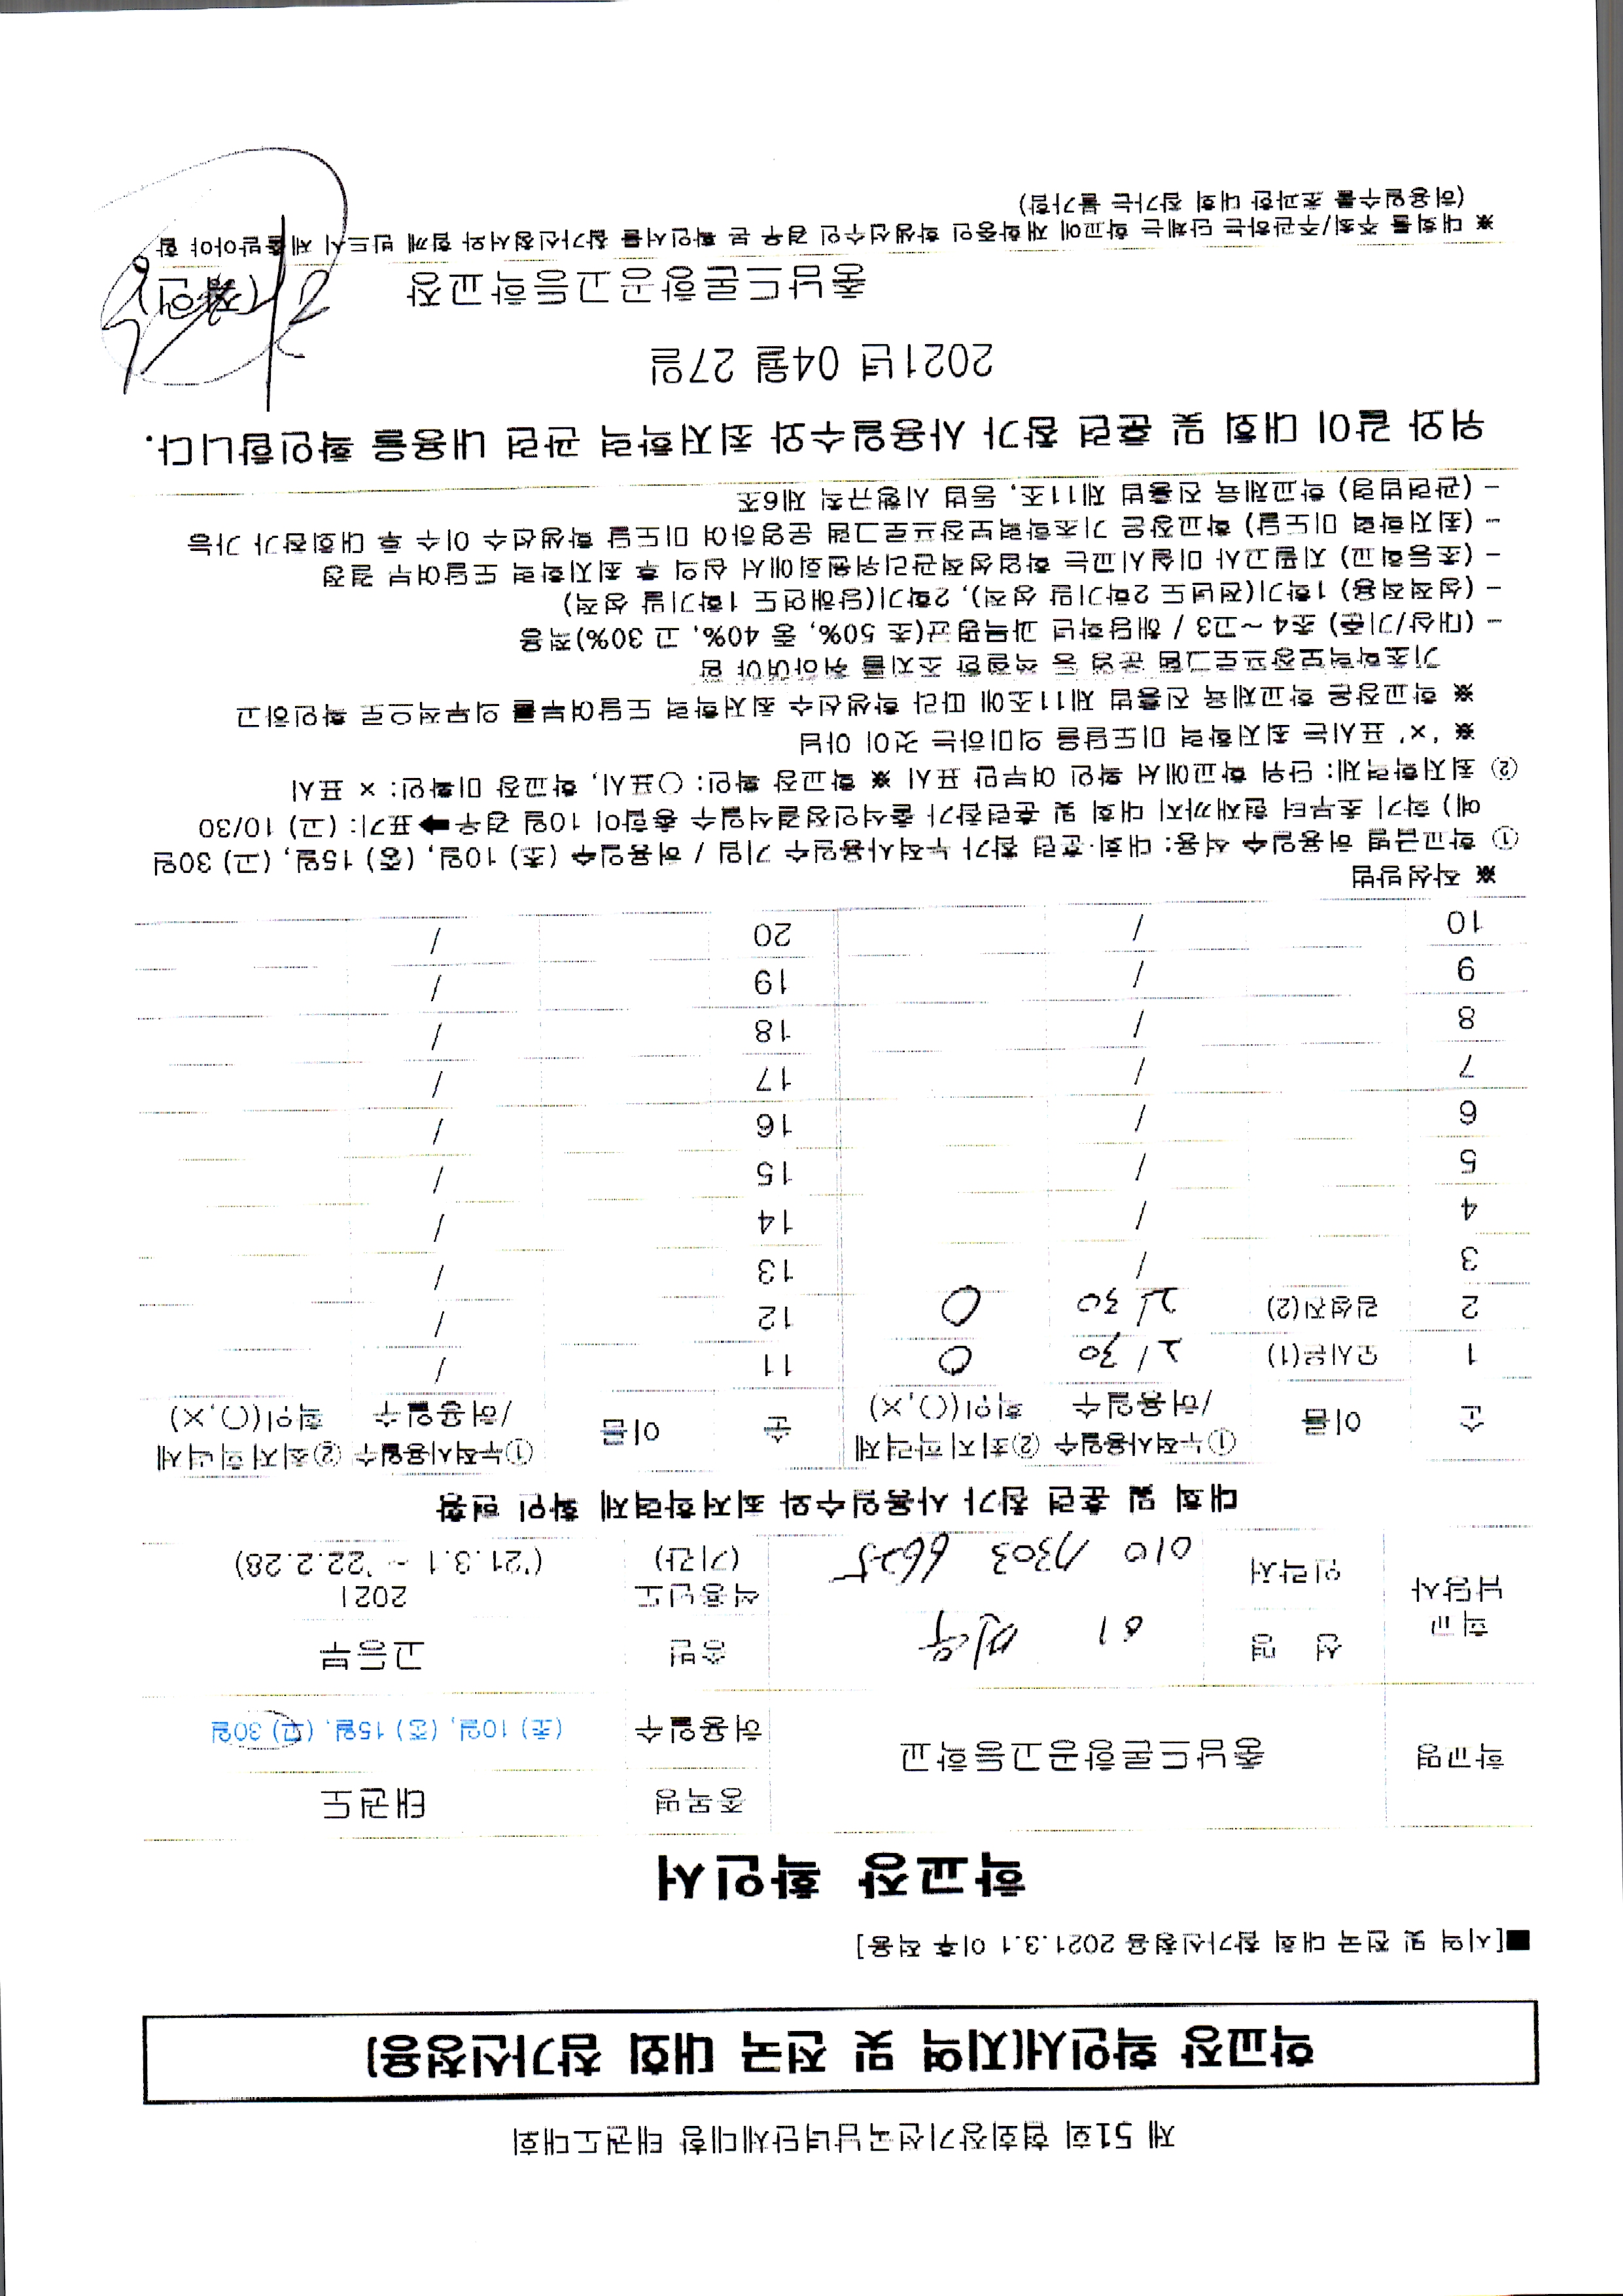 제 51회 협회장기전국남녀단체대항 태권도대회
학교장 확인서(지역 및 전국 대회 참가신청용)
■[지역 및 전국 대회 참가신청용 2021.3.1 이후 적용]
학교장 확인서
학교명 충남드론항공고등학교 종목명 태권도
허용일수 (초) 10일, (중) 15일, (고) 30일
학교 담당자 성 명 종별 고등부
연락처 010 7303 6625 적용년도 (기간) 2021 ('21.3.1 ~ '22.2.28)
대회 및 훈련 참가 사용일수와 최저학력제 확인 현황
순 이름 ①누적사용일수 /허용일수 ②최저학력제 확인(○,×) 순 이름 ①누적사용일수 /허용일수 ②최저학력제 확인(○,×)
1 모시윤(1) 2/30 O 11 /
2 김성진(2) 2/30 O 12 /
3 / 13 /
4 / 14 /
5 / 15 /
6 / 16 /
7 / 17 /
8 / 18 /
9 / 19 /
10 / 20 /
※ 작성방법
① 학교급별 허용일수 적용: 대회·훈련 참가 누적사용일수 기입 / 허용일수 (초) 10일, (중) 15일, (고) 30일
예) 학기 초부터 현재까지 대회 및 훈련참가 출석인정결석일수 총합이 10일 경우➡표기: (고) 10/30
② 최저학력제: 단위 학교에서 확인 여부만 표시 ※ 학교장 확인: ○표시, 학교장 미확인: × 표시
※ '×' 표시는 최저학력 미도달을 의미하는 것이 아님
※ 학교장은 학교체육 진흥법 제11조에 따라 학생선수 최저학력 도달여부를 의무적으로 확인하고
기초학력보장프로그램 운영 등 적절한 조치를 취하여야 함
- (대상/기준) 초4 ~고3 / 해당학년 과목평균(초 50%, 중 40%, 고 30%)적용
- (성적적용) 1학기(전년도 2학기말 성적), 2학기(당해연도 1학기말 성적)
- (초등학교) 지필고사 미실시교는 학업성적관리위원회에서 심의 후 최저학력 도달여부 결정
- (최저학력 미도달) 학교장은 기초학력보장프로그램 운영하여 미도달 학생선수 이수 후 대회참가 가능
- (관련법령) 학교체육 진흥법 제11조, 동법 시행규칙 제6조
위와 같이 대회 및 훈련 참가 사용일수와 최저학력 관련 내용을 확인합니다.
2021년 04월 27일
충남드론항공고등학교장 (직인)
※ 대회를 주최/주관하는 단체는 학교에 재학중인 학생선수인 경우 본 확인서를 참가신청서와 함께 반드시 제출받아야 함
(허용일수를 초과한 대회 참가는 불가함)